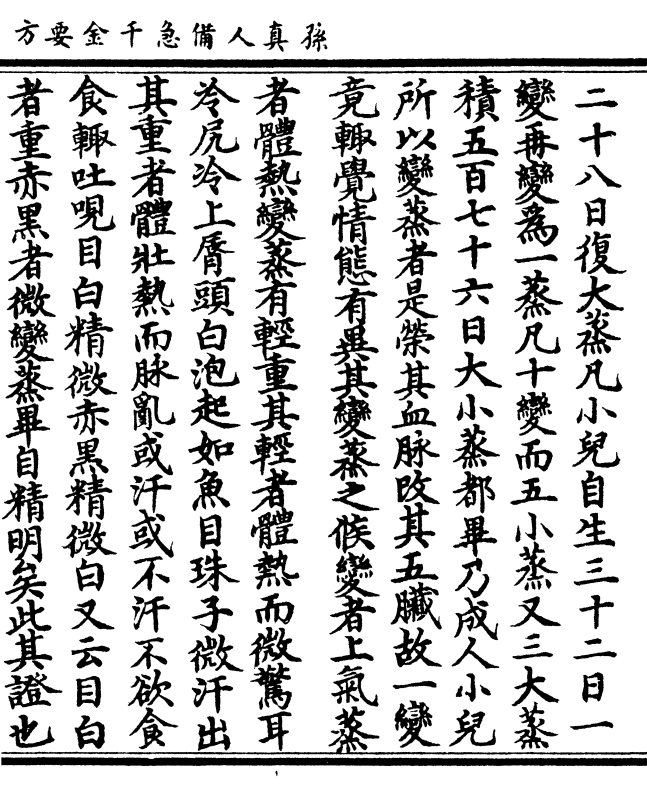 孫真人備急千金要方
二十八日復大蒸凡小兒自生三十二日一
變再變爲一蒸凡十變而五小蒸又三大蒸
積五百七十六日大小蒸都畢乃成人小兒
所以變蒸者是榮其血脉改其五臟故一變
竟輙覺情態有異其變蒸之候變者上氣蒸
者體熱變蒸有輕重其輕者體熱而微驚耳
冷尻冷上脣頭白泡起如魚目珠子微汗出
其重者體壯熱而脉亂或汗或不汗不欲食
食輙吐哯目白精微赤黒精微白又云目白
者重赤黒者微變蒸畢自精明矣此其證也